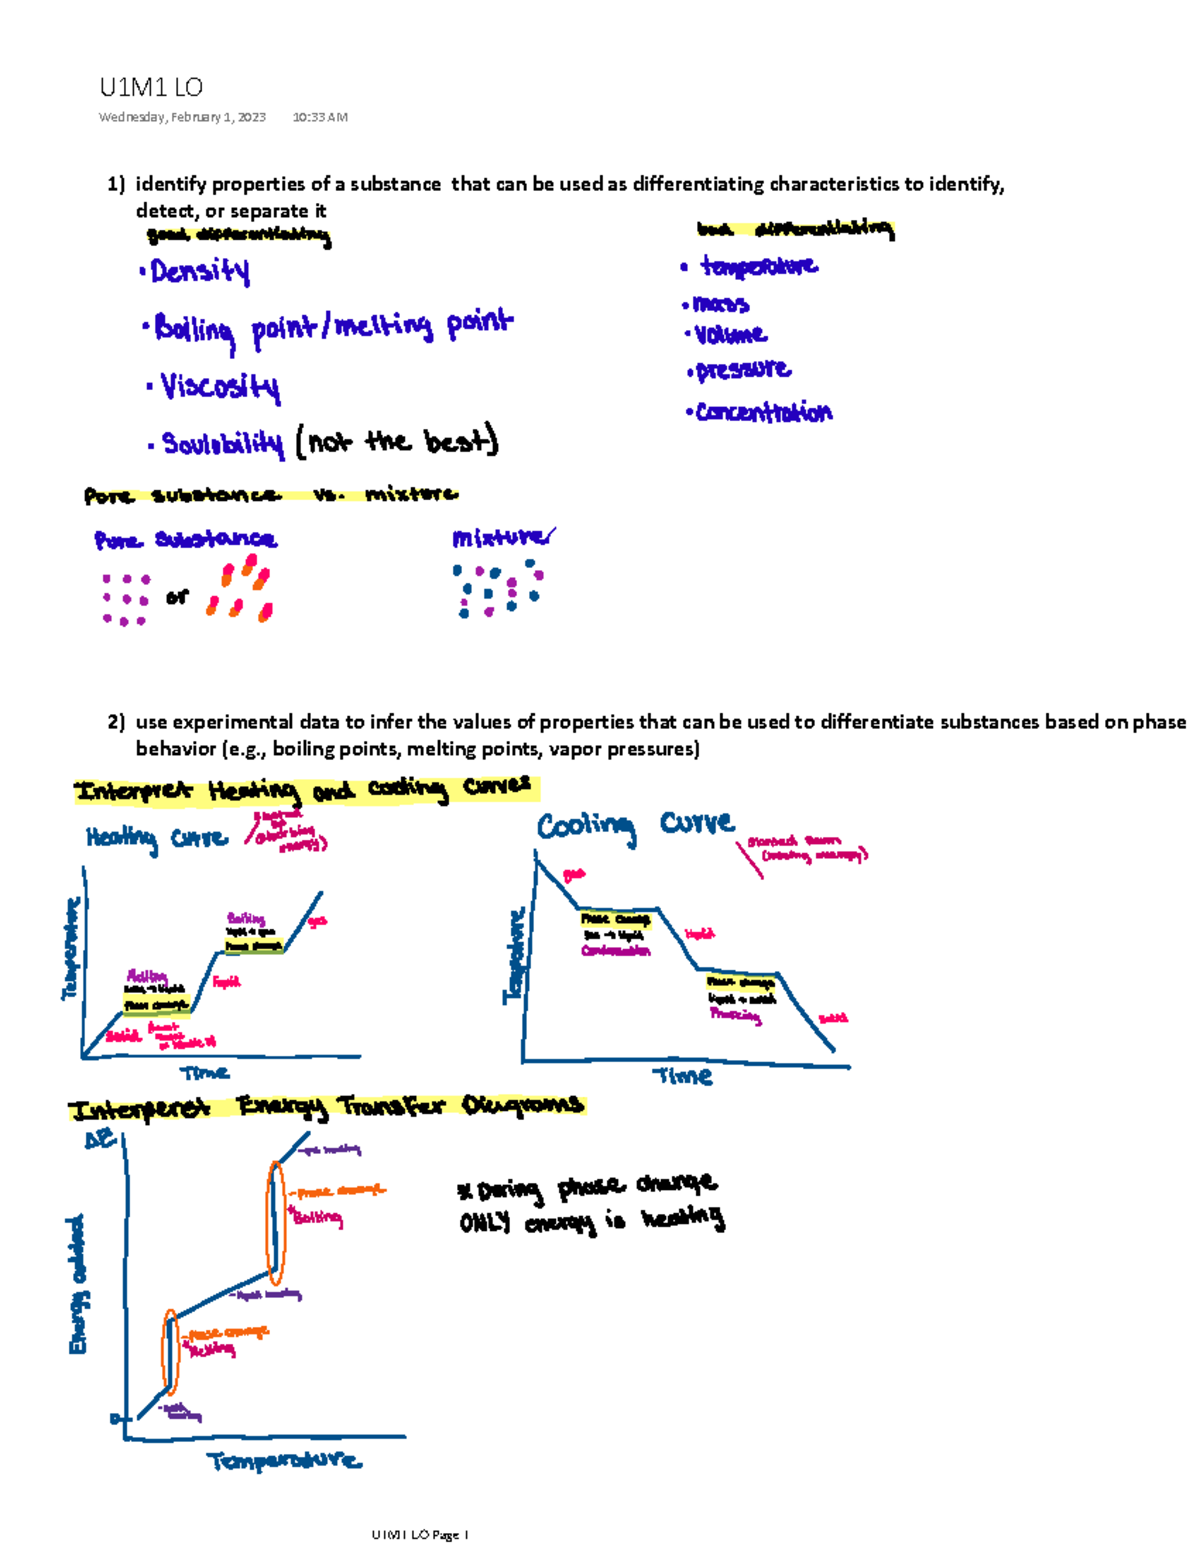 U1M1 LO
Wednesday, February 1, 2023 10:33 AM
1) identify properties of a substance that can be used as differentiating characteristics to identify,
detect, or separate it
good differentiating
• Density
• Boiling point/melting point
• Viscosity
• Soulobility (not the best)
bad differentiating
• temperature
• mass
• Volume
• pressure
• Concentration
Pure substance vs. mixture
Pure Substance
or
mixture
2) use experimental data to infer the values of properties that can be used to differentiate substances based on phase
behavior (e.g., boiling points, melting points, vapor pressures)
Interpret Heating and Cooling Curves
Heating Curve
absorbing
energy)
Temperature
Boiling
liquid → gas
Phase change
gas
Melting
Phase change
liquid
Solid
Time
Cooling Curve
gas
Temperature
Phase change
gas → liquid
Condensation
liquid
Phase change
liquid → solid
Freezing
solid
Time
Interperet Energy Transfer Diagrams
ΔE
Energy added
- gas heating
- Phase change
* Boiling
- liquid heating
- Phase change
* Melting
0
Temperature
* During phase change
ONLY energy is heating
U1M1 LO Page 1